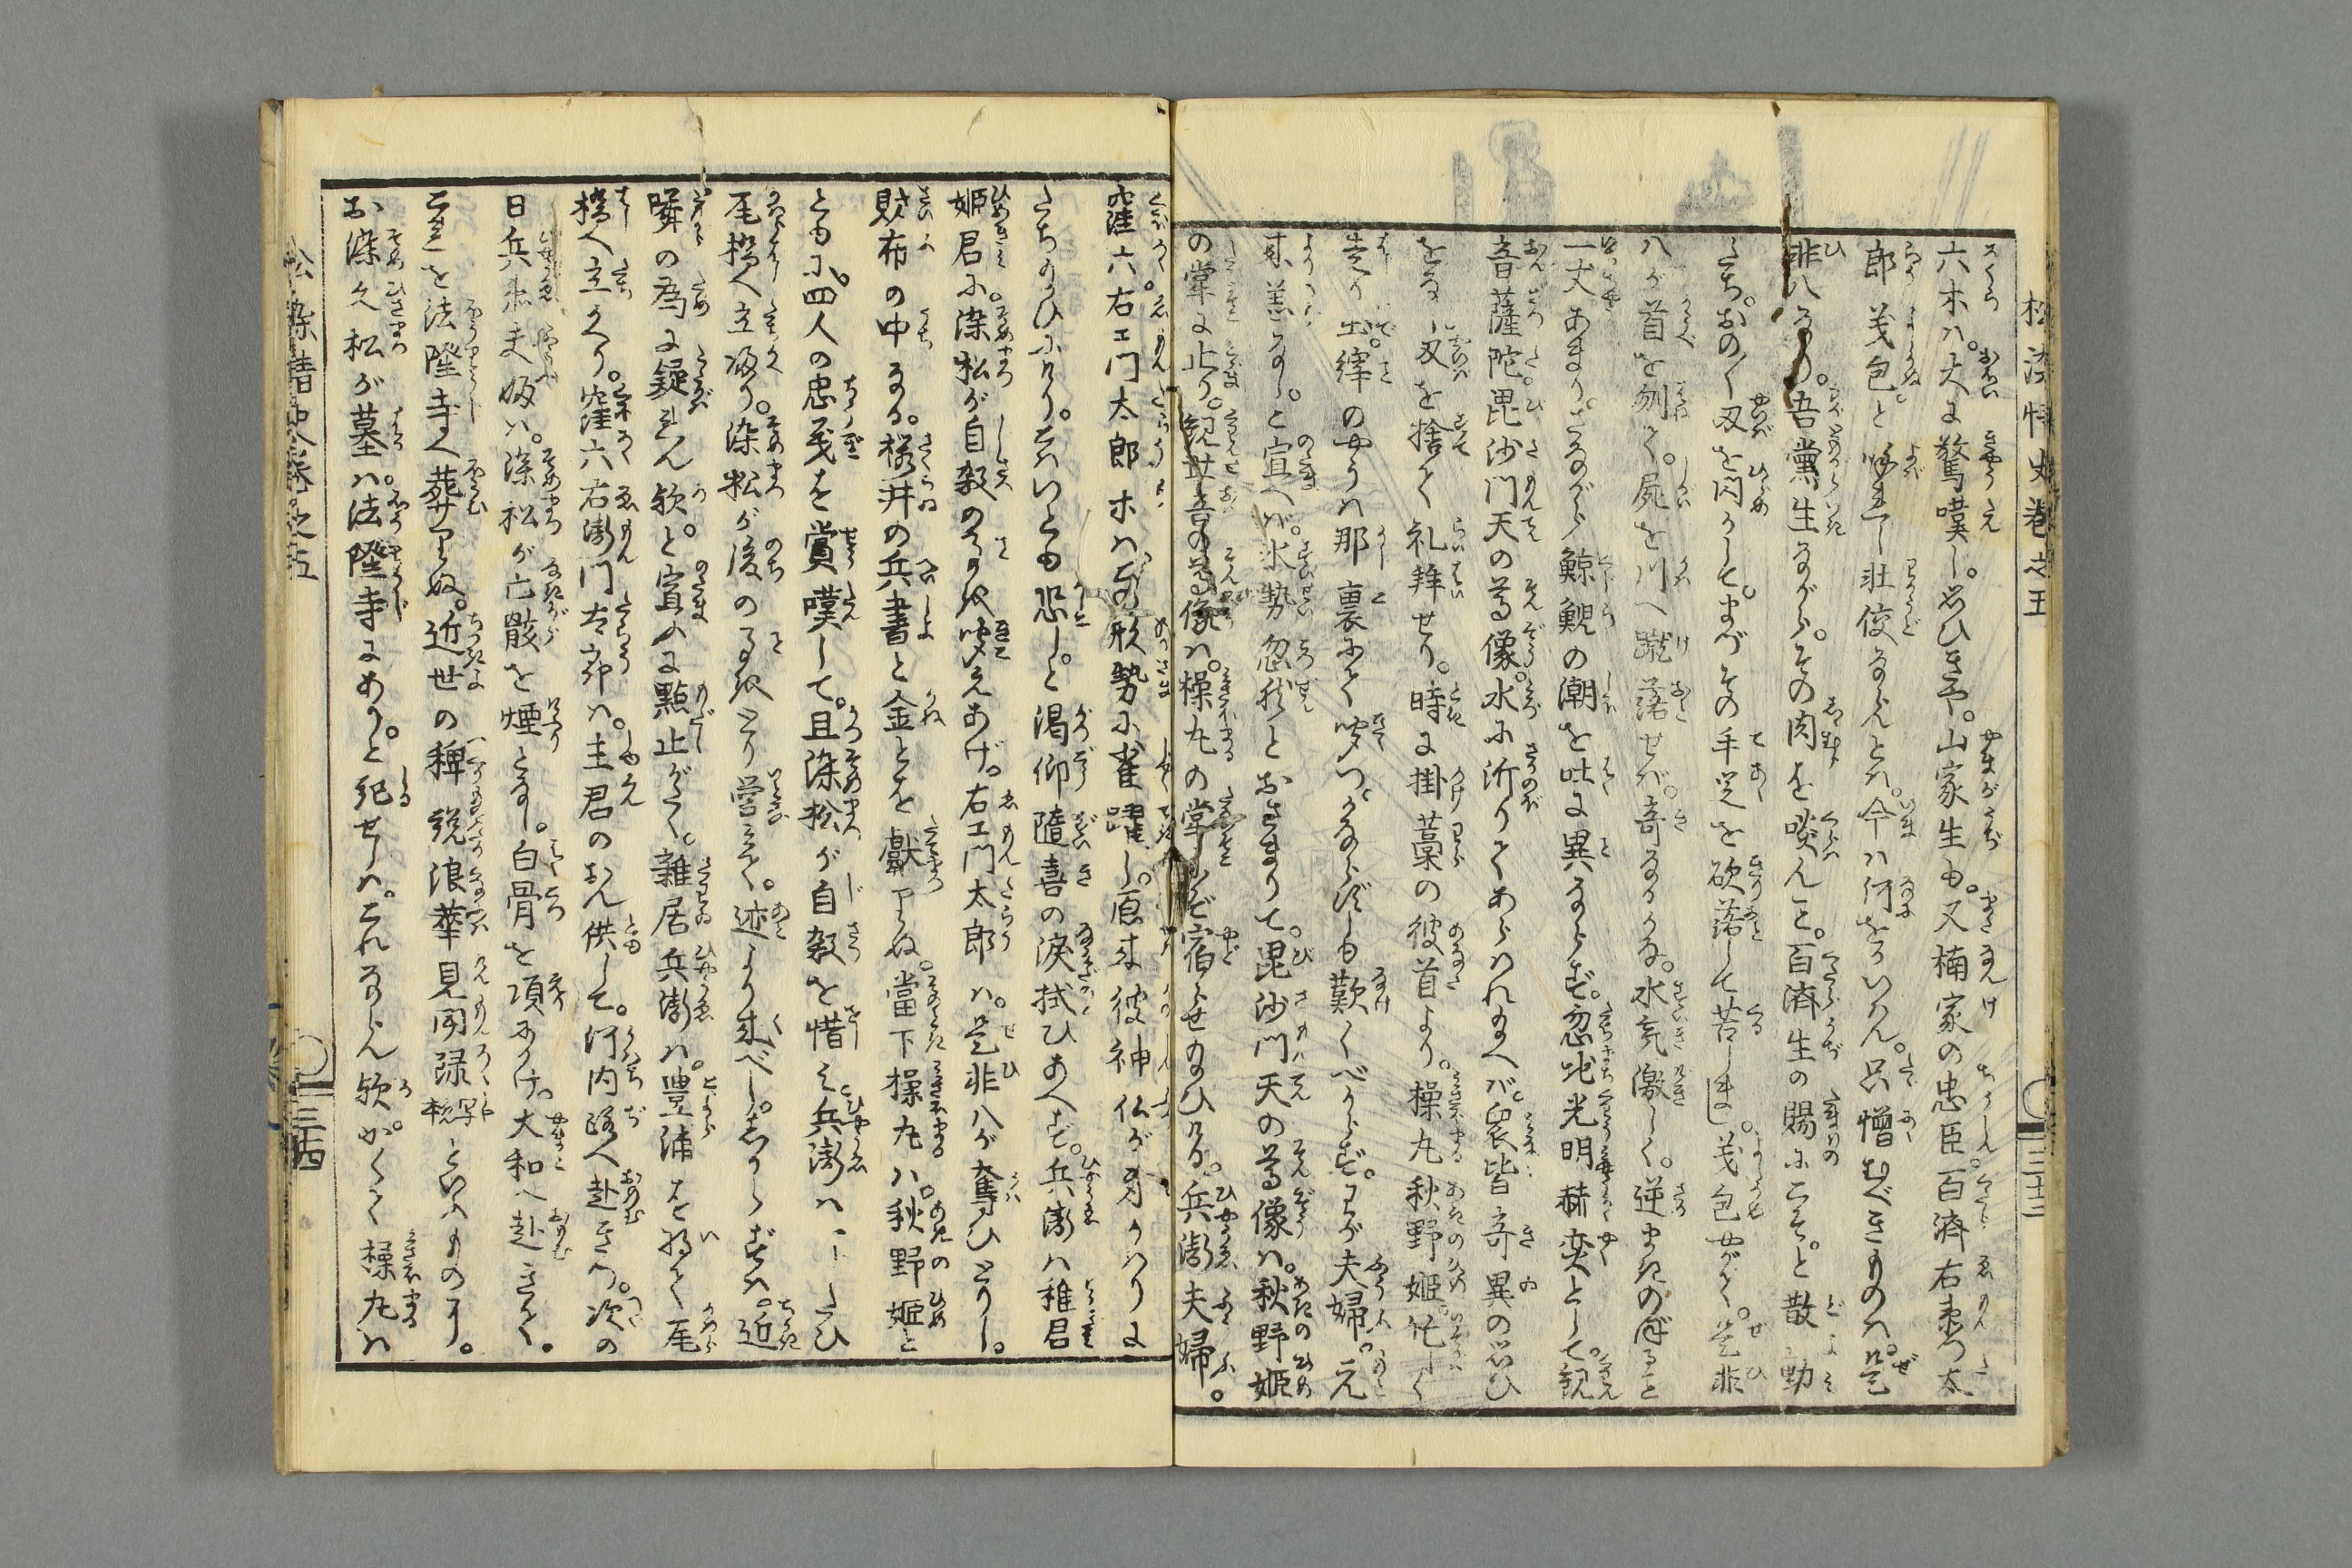 六木ハ。大に驚嘆し。思ひきや。山家生も。又楠家の忠臣。百済右衛門太
郎義包と呼れし壮佼ならんとハ。今ハ何をかいはん。只憎むべきものハ。是
非八なり。吾黨生ながら。その肉を啖んと。百済生の賜にこそ。と散動
たち。おの／＼刃を閃かして。まづその手足を砍落して苦しまし。義包やがて。是非
八が首を刎て。屍を川へ蹴落せば。奇なるかな。水気激しく。逆まきのぼること
一丈あまり。さながら鯨鯢の潮を吐に異ならず。忽地光明赫奕として。観
音薩陀毘沙門天の尊像。水に泝りてあらはれ給へば。衆皆奇異の思ひ
をなし。刃を捨て礼拝せり。時に掛藁の彼首より。操丸秋野姫忙しく
走り出。縡のやうハ那裏にて聞つ。かならずしも歎くべからず。わが夫婦。元
来恙なし。と宣へば。水勢忽然とおさまりて。毘沙門天の尊像ハ。秋野姫
の掌に止り。観世音の尊像ハ。操丸の掌にぞ宿らせ給ひける。兵衛夫婦。
窪六。右エ門太郎ホハこの形勢に雀躍し。原来彼神仏が身がハりに
たち給ひにけり。あないとも恐し。と渇仰随喜の涙拭ひあへず。兵衛ハ稚君
姫君に。染松が自殺のことを聞えあげ。右エ門太郎ハ。是非八が奪ひとりし。
財布の中なる。桜井の兵書と金とを献りぬ。當下操丸ハ。秋野姫と
ともに。四人の忠義を賞嘆して。且染松が自殺を惜み。兵衛ハ一トたび
瓦橋へ立皈り。染松が後の事をとり営みて。迹より来べし。しからずハ。近
隣の為に疑れん歟。と宣ふに黙止がたく。雑居兵衛ハ。豊浦を将て瓦
橋へ立かへり。窪六右衛門太郎ハ。主君のおん供して。河内路へ赴きつ。次の
日兵衛夫婦ハ。染松が亡骸を煙となし。白骨を項にかけ。大和へ赴きて。
これを法隆寺へ葬りぬ。近世の稗説浪華見聞録写本といふものに。
お染久松が墓ハ。法隆寺にあり。と紀せしハ。これならん歟。かくて操丸ハ
三十三
三十四